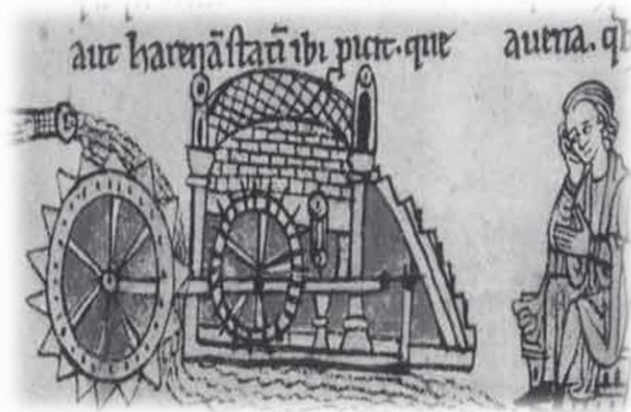 aut harenā ſtatī ibi picit. que auerra.